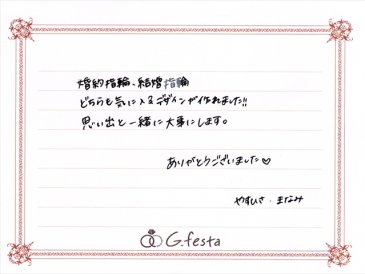 婚約指輪、結婚指輪
どちらも気に入るデザインが作れました!!
思い出と一緒に大事にします。
ありがとうございました♡
やすひさ・まなみ
G.festa